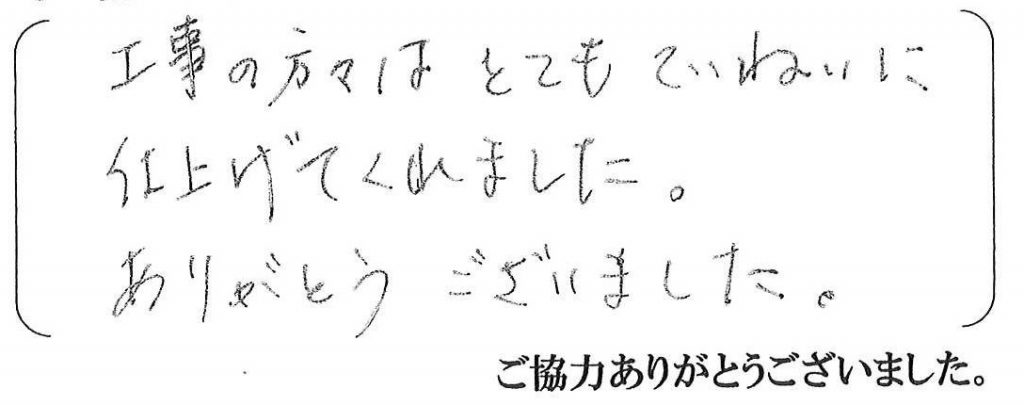 工事の方々はとてもていねいに
仕上げてくれました。
ありがとうございました。
ご協力ありがとうございました。